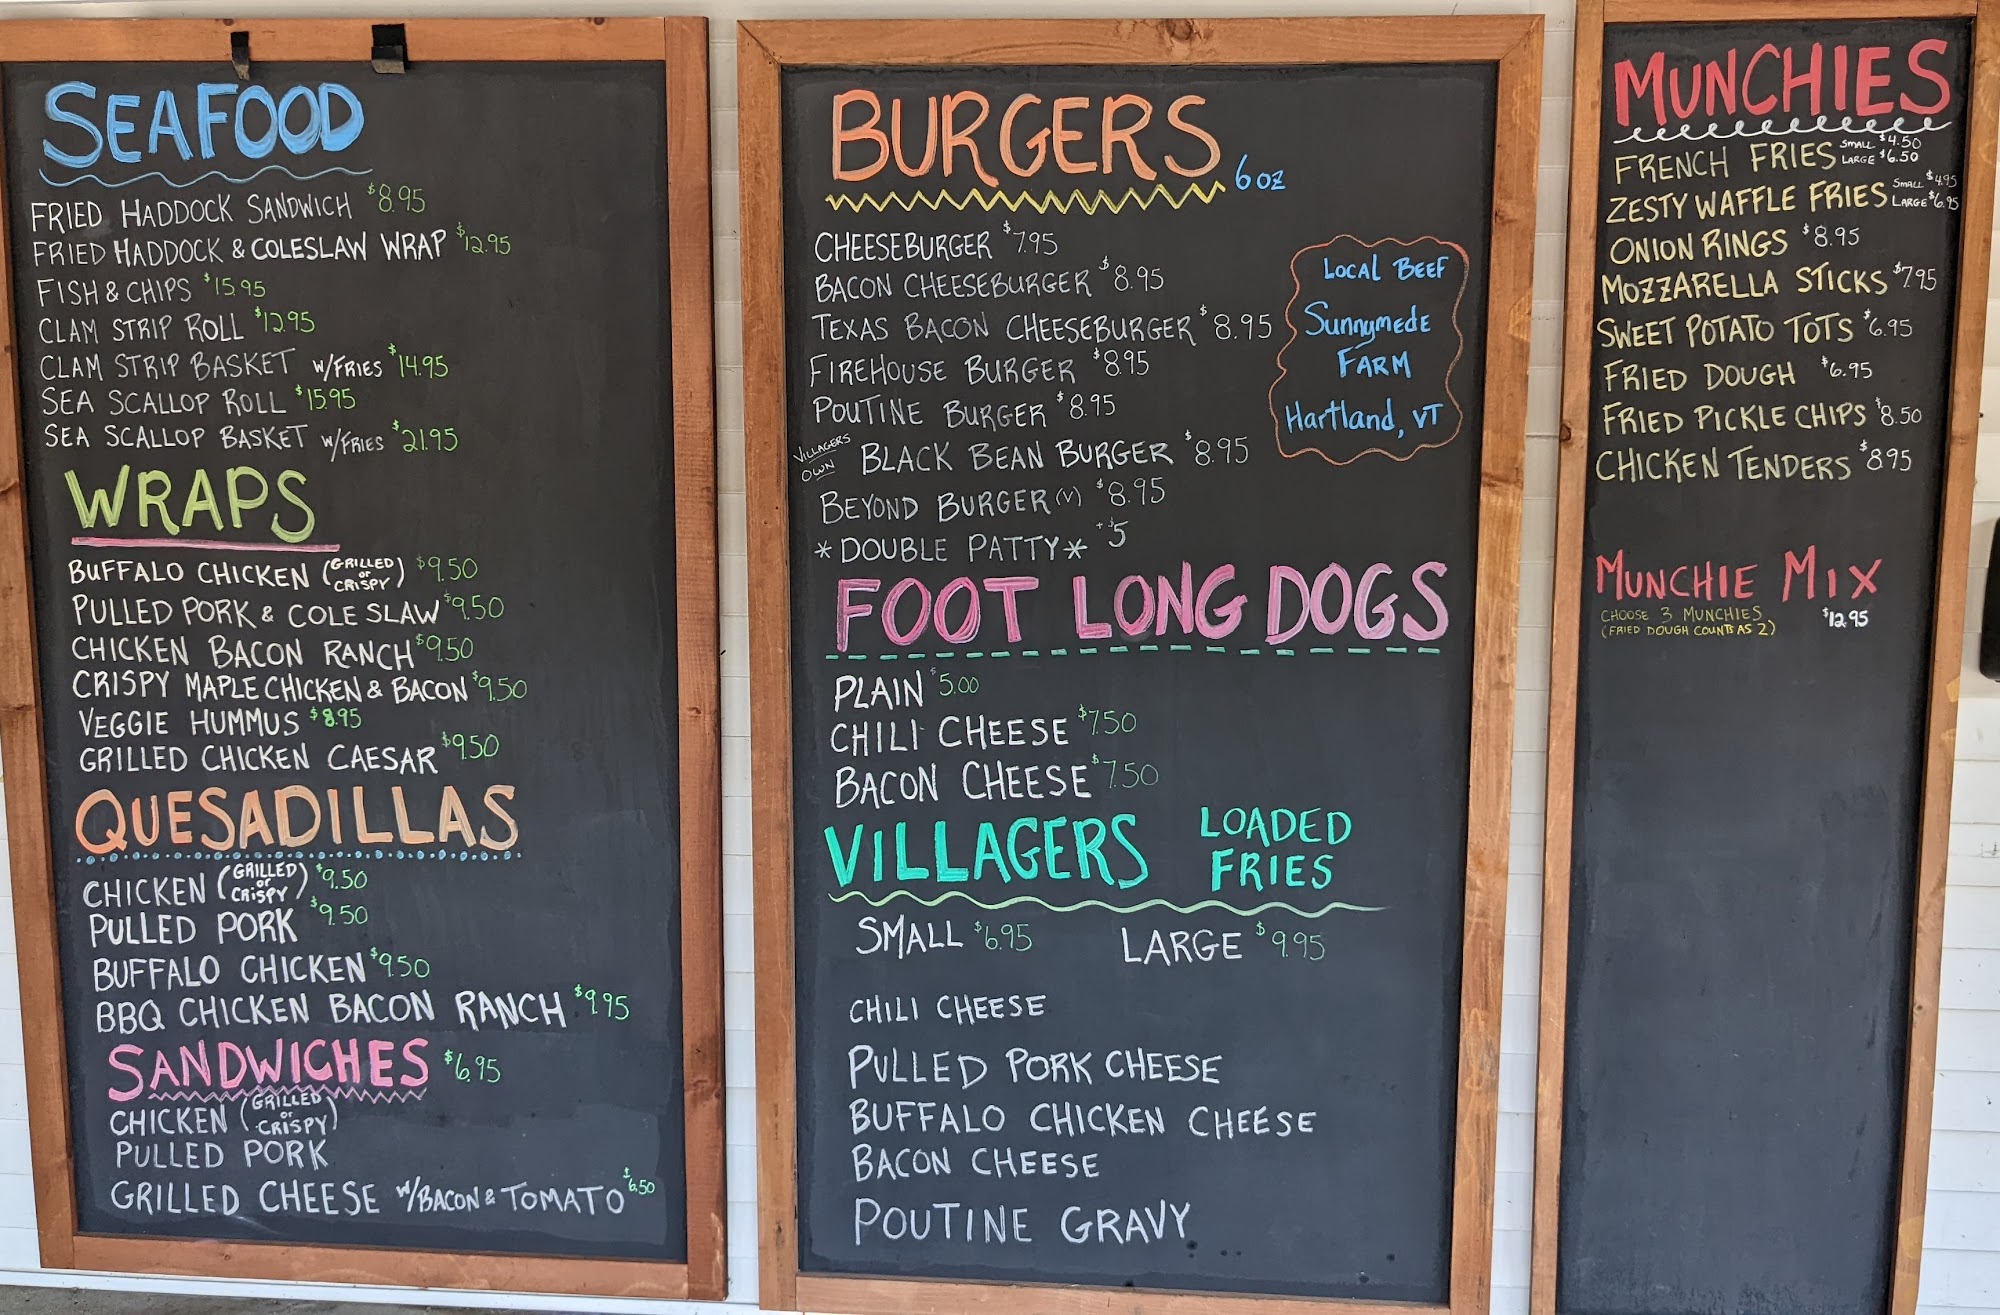 SEAFOOD
FRIED HADDOCK SANDWICH $8.95
FRIED HADDOCK & COLESLAW WRAP $12.95
FISH & CHIPS $15.95
CLAM STRIP ROLL $12.95
CLAM STRIP BASKET W/FRIES $14.95
SEA SCALLOP ROLL $15.95
SEA SCALLOP BASKET W/FRIES $21.95
WRAPS
BUFFALO CHICKEN (GRILLED or CRISPY) $9.50
PULLED PORK & COLE SLAW $9.50
CHICKEN BACON RANCH $9.50
CRISPY MAPLE CHICKEN & BACON $9.50
VEGGIE HUMMUS $8.95
GRILLED CHICKEN CAESAR $9.50
QUESADILLAS
CHICKEN (GRILLED or CRISPY) $9.50
PULLED PORK $9.50
BUFFALO CHICKEN $9.50
BBQ CHICKEN BACON RANCH $9.95
SANDWICHES $6.95
CHICKEN (GRILLED or CRISPY)
PULLED PORK
GRILLED CHEESE W/BACON & TOMATO $6.50
BURGERS 6 oz
CHEESEBURGER $7.95
BACON CHEESEBURGER $8.95
TEXAS BACON CHEESEBURGER $8.95
FIREHOUSE BURGER $8.95
POUTINE BURGER $8.95
VILLAGERS OWN BLACK BEAN BURGER $8.95
BEYOND BURGER (V) $8.95
*DOUBLE PATTY* +$5
LOCAL BEEF
Sunnymede
FARM
Hartland, VT
FOOT LONG DOGS
PLAIN $5.00
CHILI CHEESE $7.50
BACON CHEESE $7.50
VILLAGERS LOADED FRIES
SMALL $6.95 LARGE $9.95
CHILI CHEESE
PULLED PORK CHEESE
BUFFALO CHICKEN CHEESE
BACON CHEESE
POUTINE GRAVY
MUNCHIES
FRENCH FRIES SMALL $4.50 LARGE $6.50
ZESTY WAFFLE FRIES SMALL $4.95 LARGE $6.95
ONION RINGS $8.95
MOZZARELLA STICKS $7.95
SWEET POTATO TOTS $6.95
FRIED DOUGH $6.95
FRIED PICKLE CHIPS $8.50
CHICKEN TENDERS $8.95
MUNCHIE MIX
CHOOSE 3 MUNCHIES $12.95
(FRIED DOUGH COUNTS AS 2)